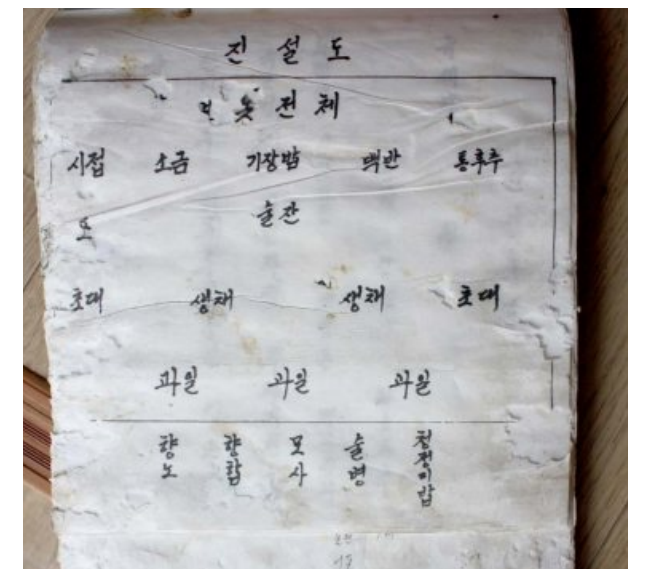 진설도
전체
시접 소금 기장밥 백반 통후추
도
술잔
초대 생채 생채 초대
과일 과일 과일
향노 향합 모사 술병